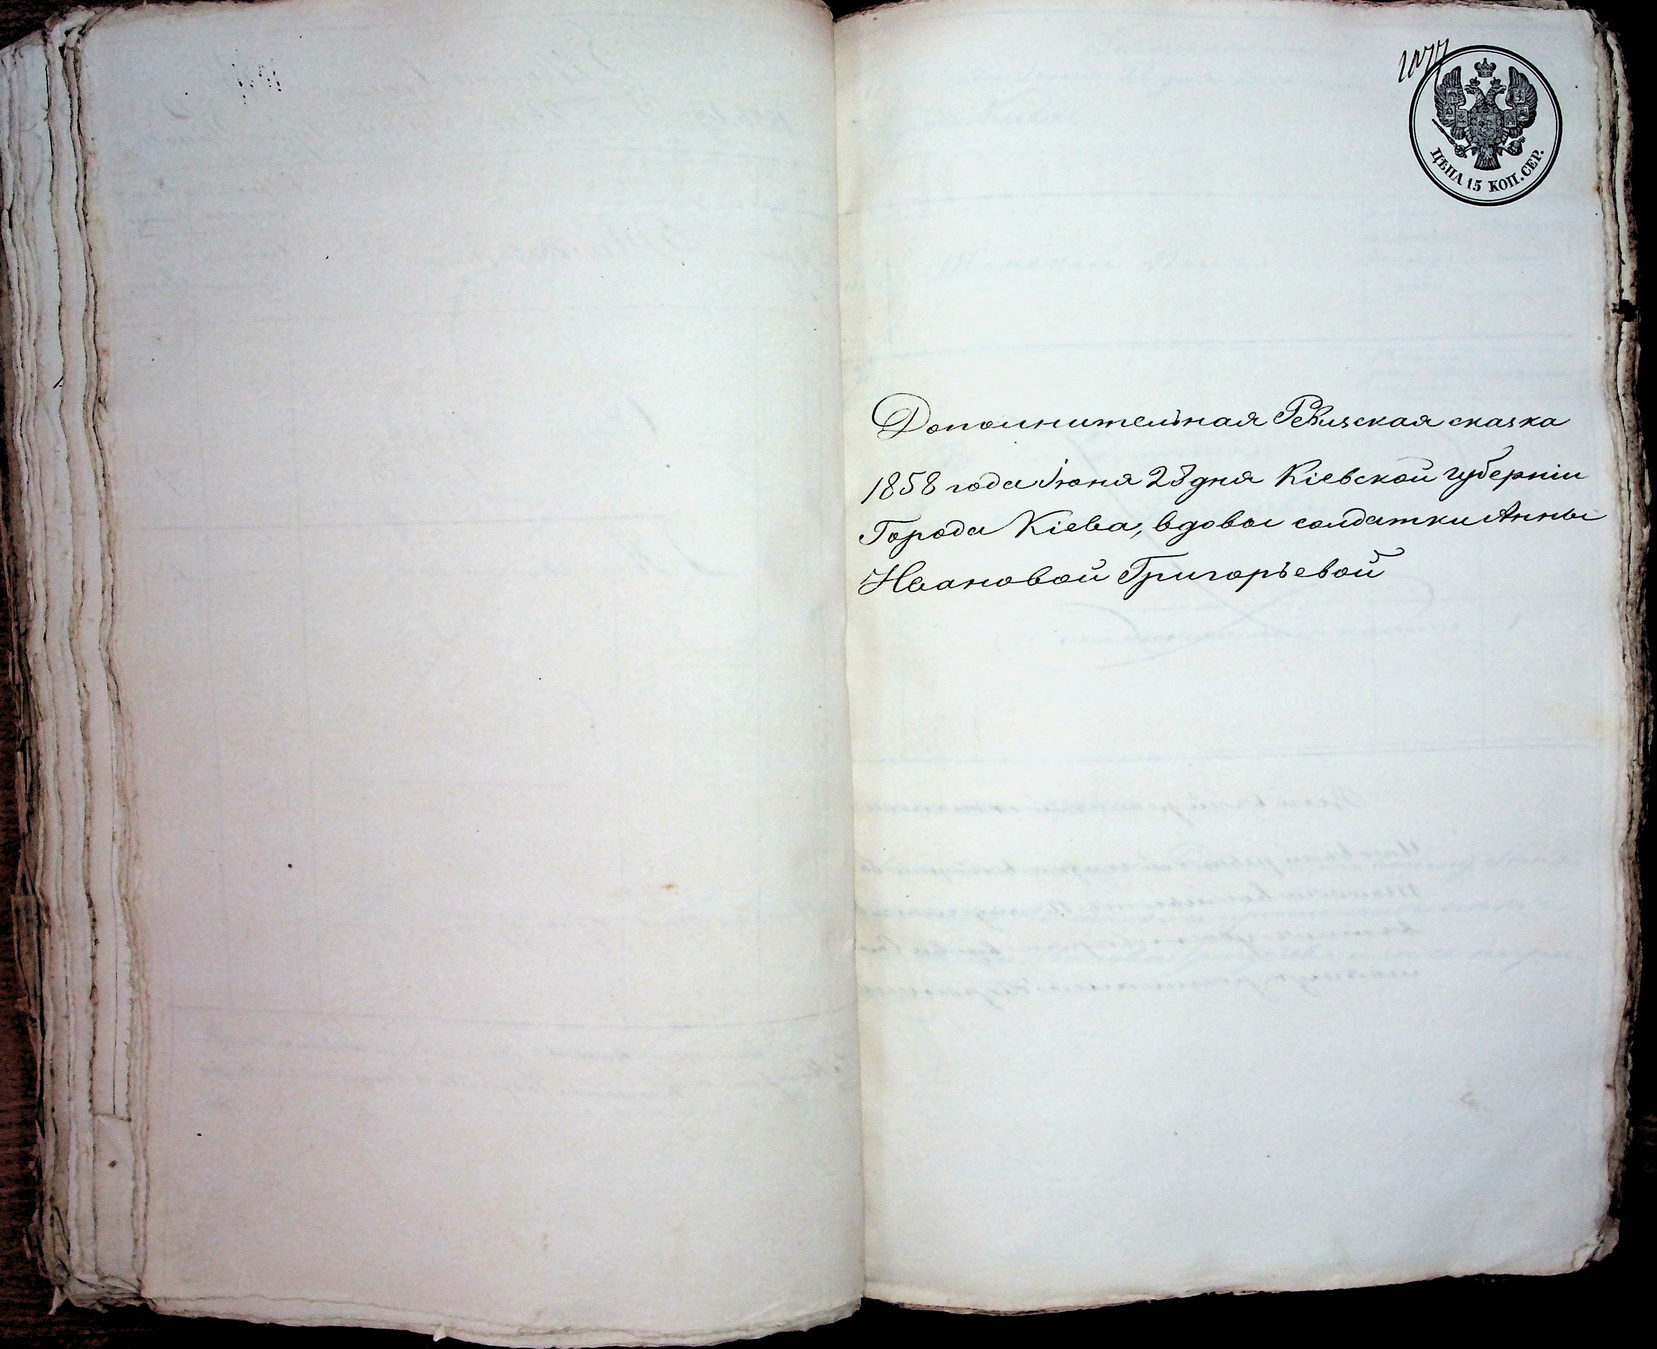 1077
ЦѢНА 15 КОП. СЕР.
Дополнительная Ревизская сказка
1858 года Іюня 23 дня Кіевской губерніи
Города Кіева, вдовы солдатки Анны
Ивановой Григорьевой